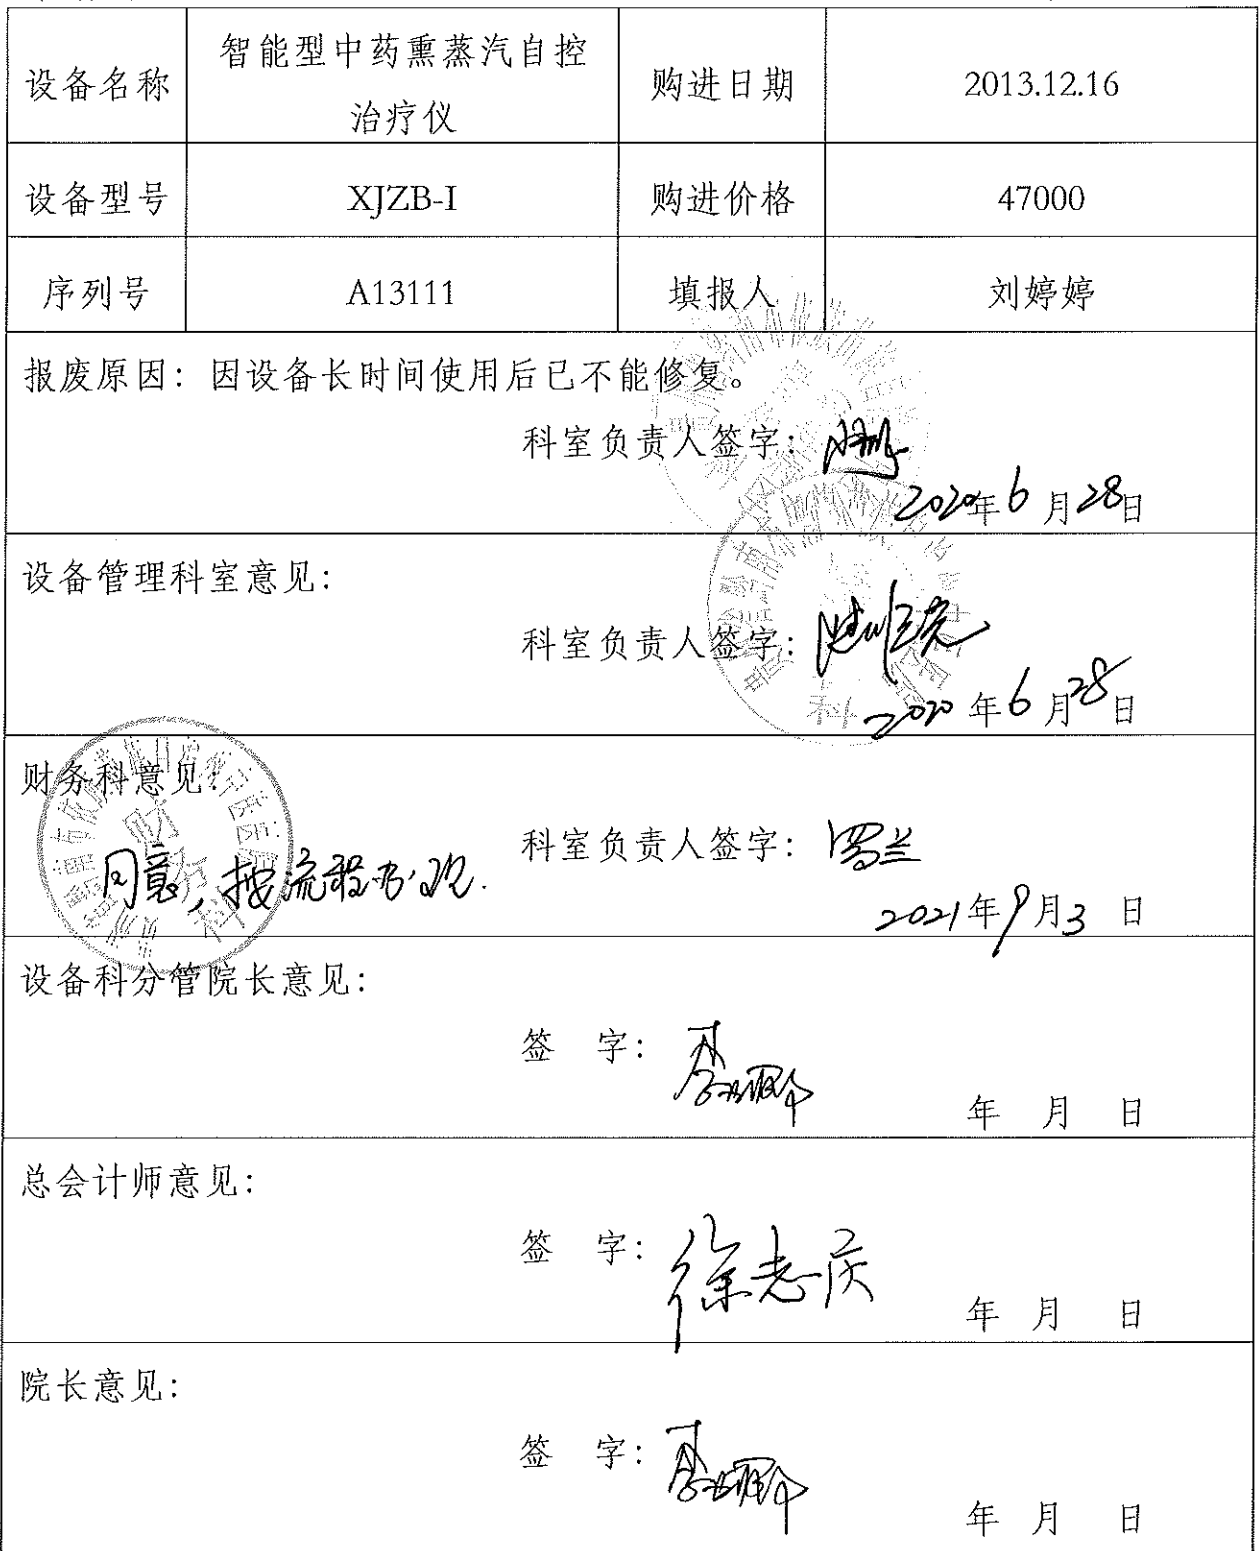 设备名称 智能型中药熏蒸汽自控治疗仪 购进日期 2013.12.16
设备型号 XJZB-I 购进价格 47000
序列号 A13111 填报人 刘婷婷
报废原因：因设备长时间使用后已不能修复。
科室负责人签字：
2020年6月28日
设备管理科室意见：
科室负责人签字：
2020年6月28日
财务科意见：
科室负责人签字：罗兰
同意，按流程办理.
2021年9月3日
设备科分管院长意见：
签 字：
年 月 日
总会计师意见：
签 字：徐志庆
年 月 日
院长意见：
签 字：
年 月 日